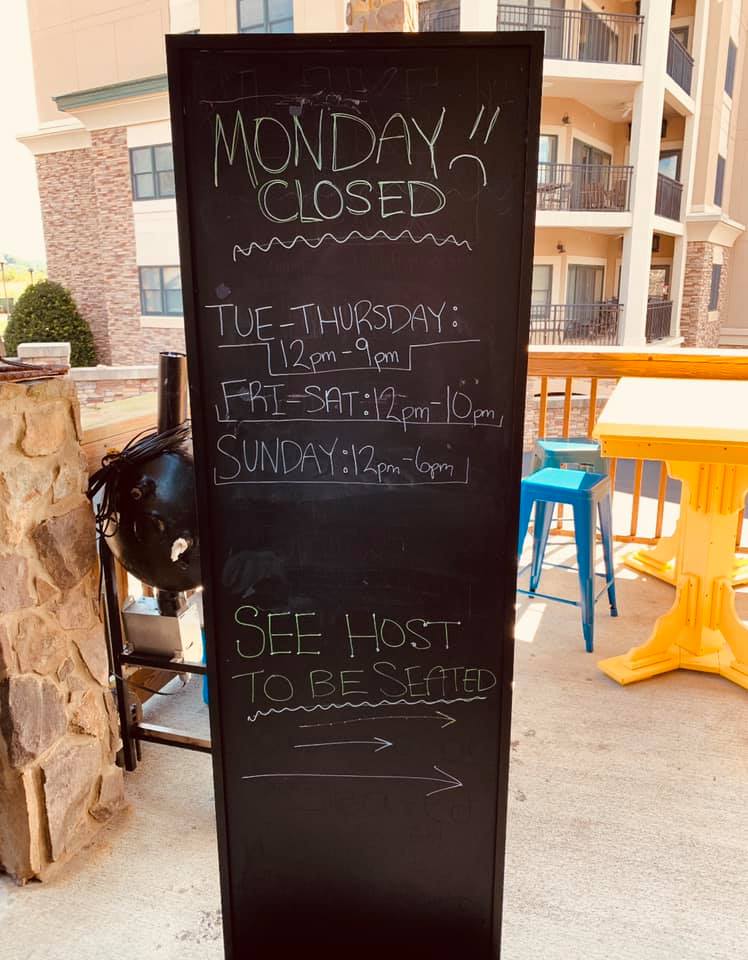 MONDAY
CLOSED
TUE-THURSDAY:
12pm-9pm
FRI-SAT:12pm-10pm
SUNDAY:12pm-6pm
SEE HOST
TO BE SEATED